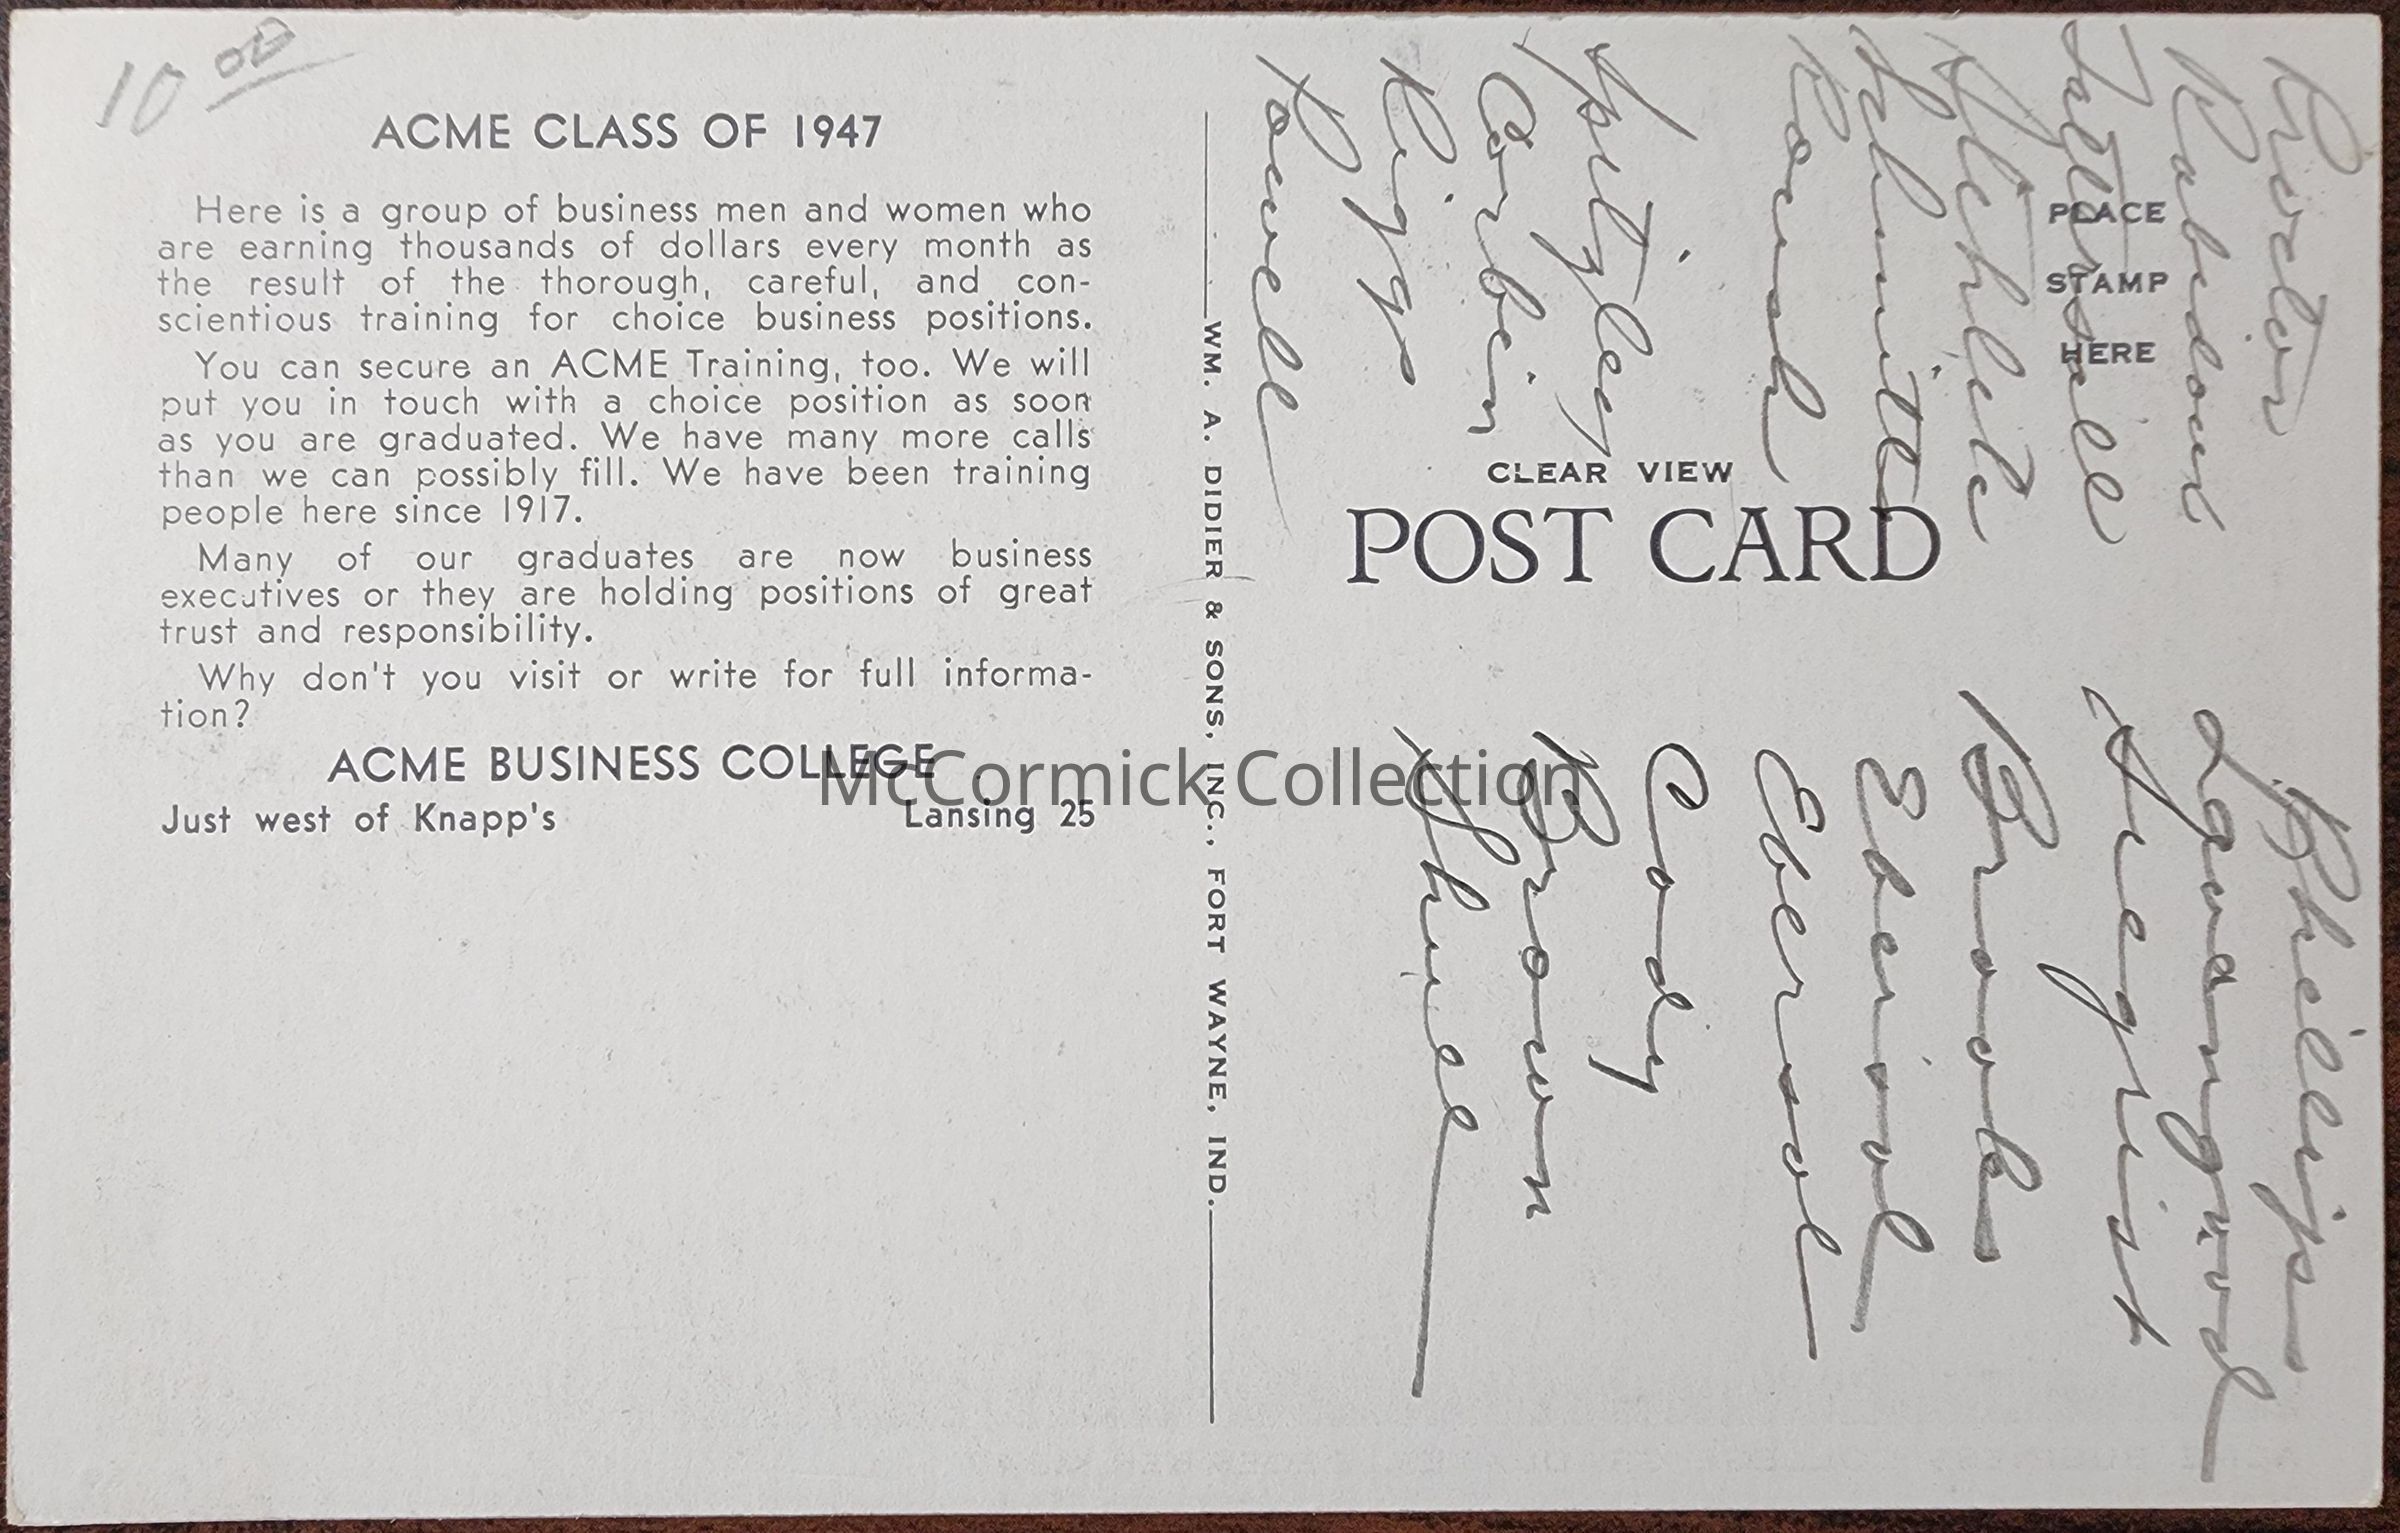 10 00
ACME CLASS OF 1947
Here is a group of business men and women who
are earning thousands of dollars every month as
the result of the thorough, careful, and con-
scientious training for choice business positions.
You can secure an ACME Training, too. We will
put you in touch with a choice position as soon
as you are graduated. We have many more calls
than we can possibly fill. We have been training
people here since 1917.
Many of our graduates are now business
executives or they are holding positions of great
trust and responsibility.
Why don't you visit or write for full informa-
tion?
ACME BUSINESS COLLEGE
Just west of Knapp's Lansing 25
WM. A. DIDIER & SONS, INC., FORT WAYNE, IND.
CLEAR VIEW
POST CARD
PLACE
STAMP
HERE
Proctor
Rabidoux
Schmitt
Roush
Spitzley
Corbin
Riggs
Powell
Phillips
Segrist
Brooks
Ebersol
Ebersol
Cody
Brown
McCormick Collection